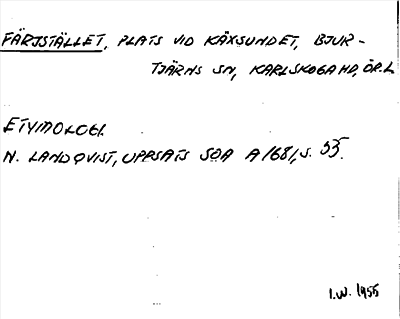 FÄRJSTÄLLET, PLATS VID KÄXSUNDET, BJUR-
TJÄRNS SN, KARLSKOGA HD, ÖR. L
ETYMOLOGI.
N. LANDQVIST, UPPSATS SOA A 1681, S. 55.
I.W. 1955